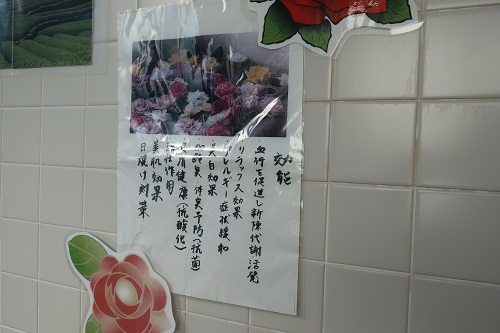 効能
血行を促進し新陳代謝活発
リラックス効果
アレルギー症状緩和
美白効果
体臭予防(抗菌)
健康(抗酸化)
作用
美肌効果
日焼け対策